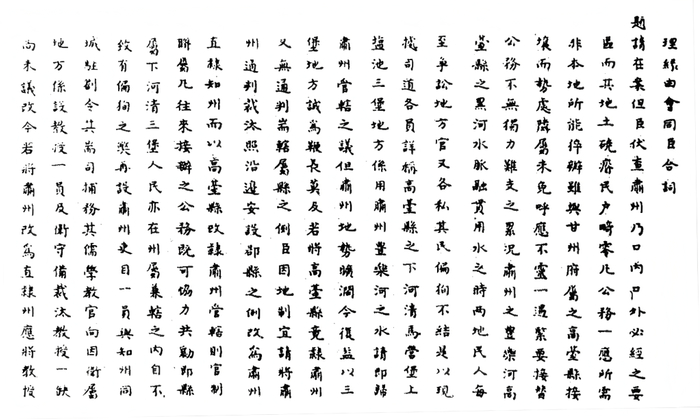 理緣由會同臣合詞
題請在案但臣伏查肅州乃口內口外必經之要
區而其地土磽瘠民戶畸零凡公務一應所需
非本地所能猝辦雖與甘州府屬之高臺縣接
壤而勢處隣屬未免呼應不靈一遇緊要接替
公務不無獨力難支之累況肅州之豐樂河高
臺縣之黑河水脈融貫用水之時兩地民人每
至爭訟地方官又各私其民偏徇不結是以現
據司道各員詳稱高臺縣之下河清馬營堡上
鹽池三堡地方係用肅州豐樂河之水請即歸
肅州管轄之議但肅州地勢曠濶今復益以三
堡地方誠爲鞭長莫及若將高臺縣竟隸肅州
又無通判耑轄屬縣之例臣因地制宜請將肅
州通判裁汰照沿邊安設郡縣之例改爲肅州
直隸知州而以高臺縣改隸肅州管轄則官制
聯屬凡往來接辦之公務既可協力共勷即縣
屬下河清三堡人民亦在州屬兼轄之內自不
致有偏徇之弊再設肅州吏目一員與知州同
城駐劄令其耑司捕務其儒學教官向因衛屬
地方係設教授一員及衛守備裁汰教授一缺
尚未議改今若將肅州改爲直隸州應將教授